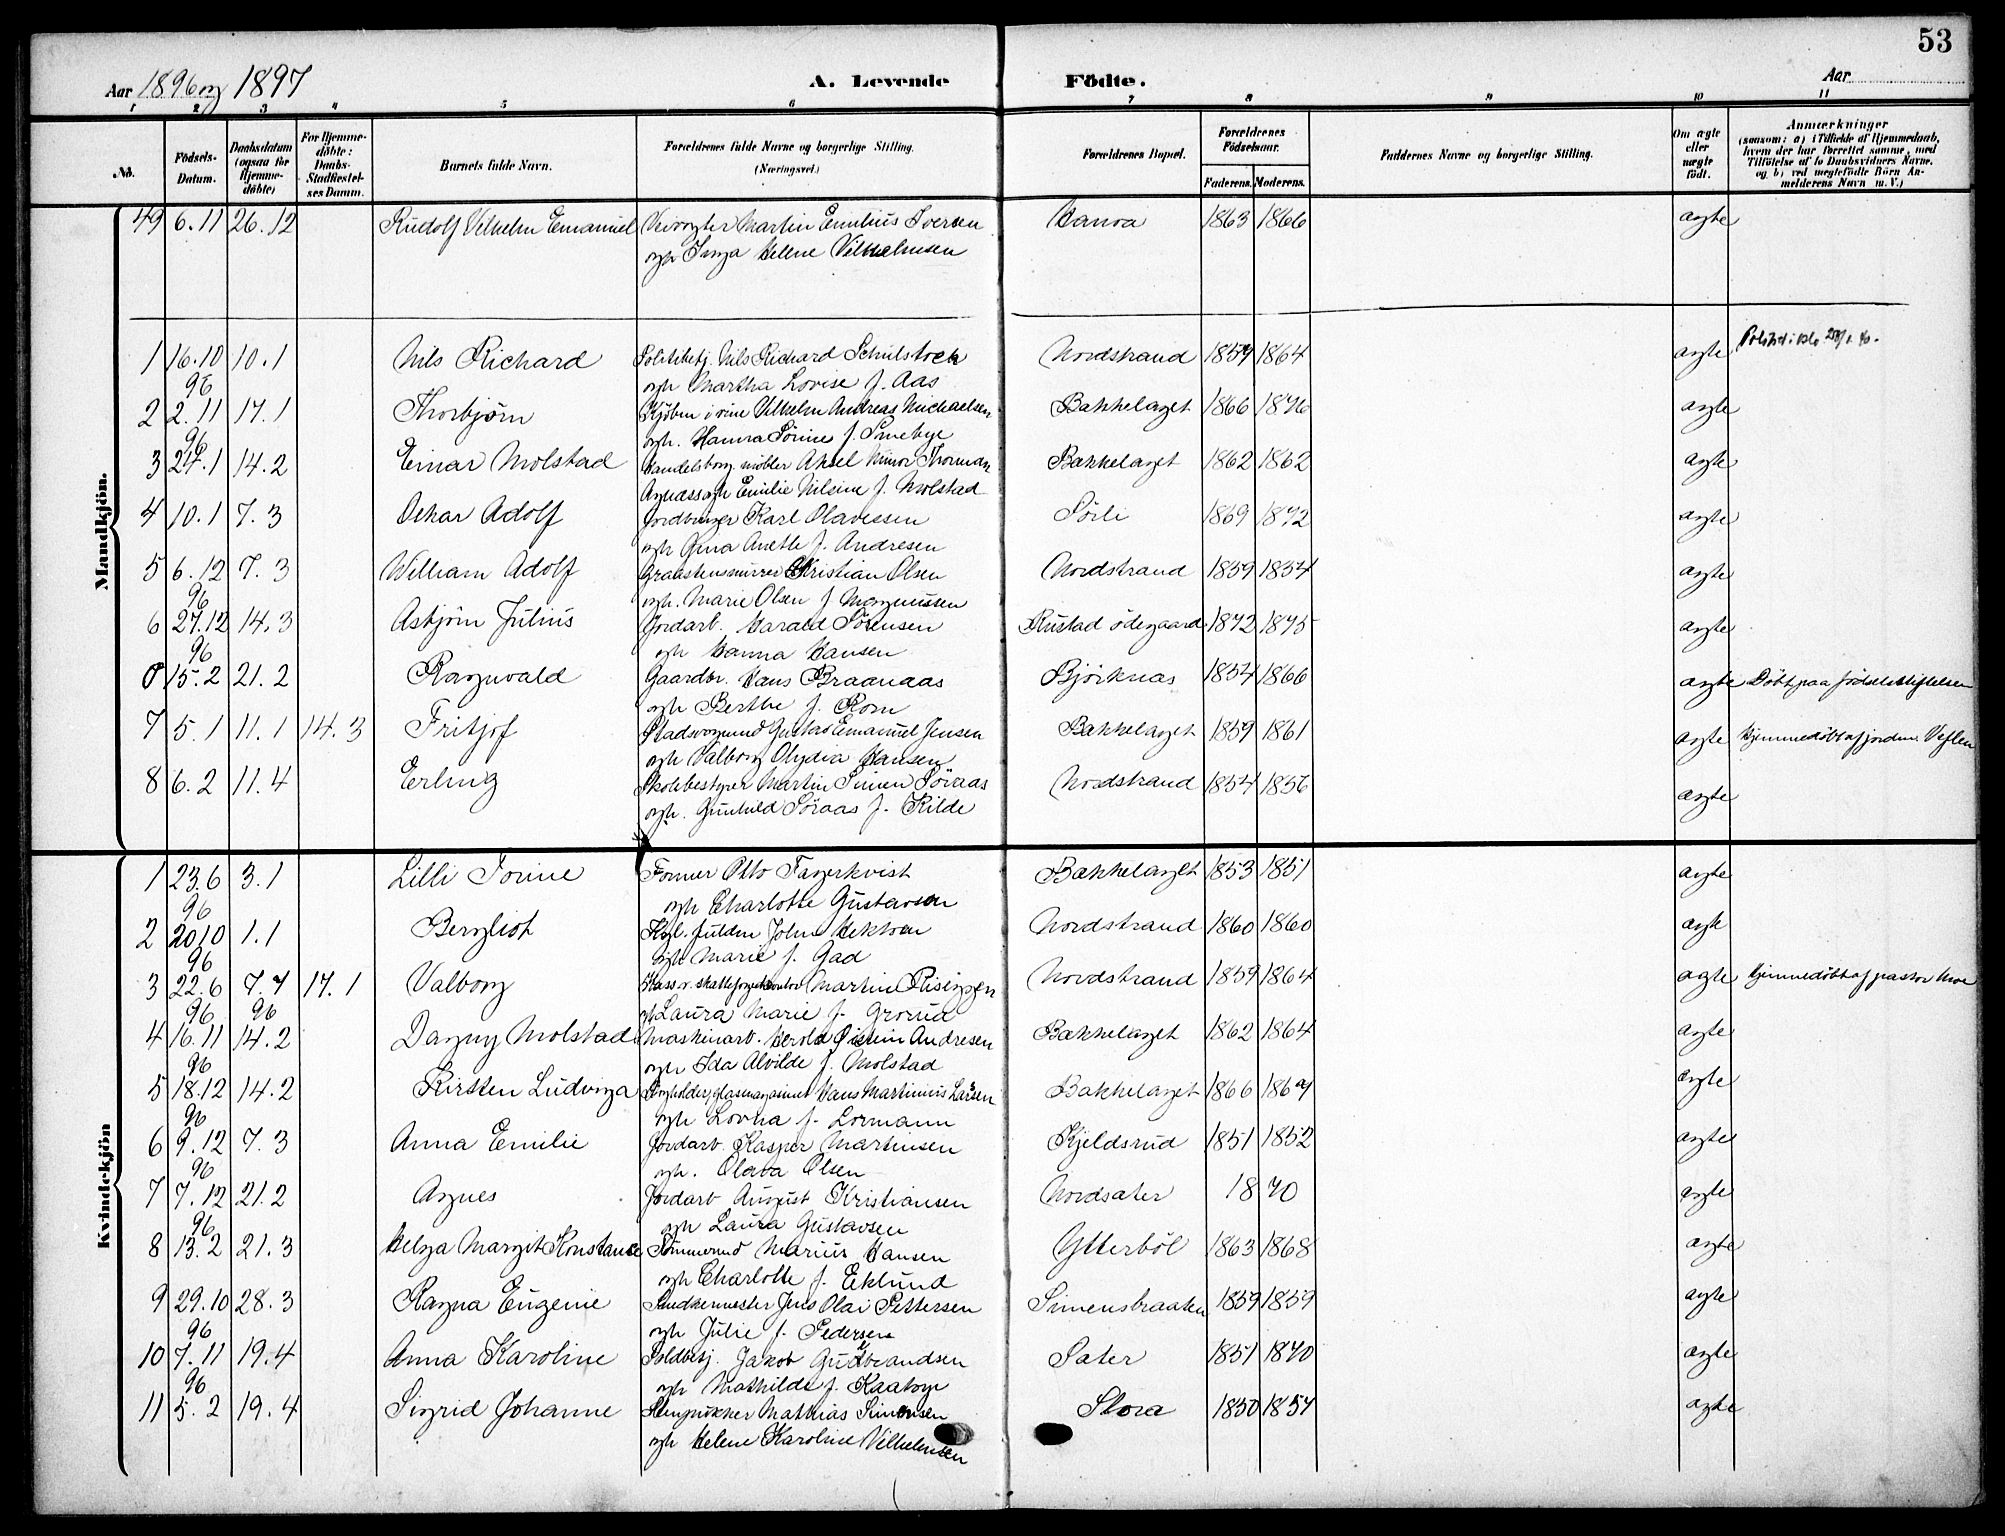 53
Aar 1896 og 1897 A. Levende Födte. Aar
1 2 3 4 5 6 7 8 9 10 11
No. Födsels-Datum. Daabsdatum (ogsaa for Hjemme-döbte) For Hjemme-döbte: Daabs-Stadfæstel-ses Datum. Barnets fulde Navn. Forældrenes fulde Navne og borgerlige Stilling. (Næringsvei.) Forældrenes Bopæl. Forældrenes Födselsaar. Faderens. Moderens. Faddernes Navne og borgerlige Stilling. Om ægte eller uægte födt. Anmærkninger (saasom: a) i Tilfælde af Hjemmedaab, hvem der har forrettet samme, med Tilföielse af to Daabsvidners Navne, og b) ved uægtefödte Börn An-melderens Navn m. V.)
Mandkjön.
49 6.11 26.12 Rudolf Vilhelm Emanuel Martin Emilius Iversen 1863 1866 ægte
og h Inga Helene Vilhelmsen
1 16.10 10.1 Nils Richard Politibetj. Nils Richard Schulstock Nordstrand 1859 1864 ægte
96 og h Martha Lovise f. Aas
2 2.11 17.1 Thorbjørn Vilhelm Andreas Michaelsen Bækkelaget 1866 1876 ægte
96 og h. Hanna Sørine f. Smebye
3 27.1 14.2 Einar Molstad Aksel Minor Thorman Bækkelaget 1862 1862 ægte
Emilie Nilsine f. Molstad
4 10.1 7.3 Oskar Adolf Jordbruger Karl Olavessen Sørli 1869 1872 ægte
og h Gina Anette f. Andresen
5 6.12 7.3 William Adolf Kristian Olsen Nordstrand 1859 1854 ægte
96 og h. Marie Olsen f Magnussen
6 27.12 14.3 Asbjørn Julius Jordarb. Harald Sørensen Rustad ødegaard 1872 1875 ægte
96 og h Hanna Hansen
0 15.2 21.2 Ragnvald Gaardbr. Hans Braanaas Bjørknas 1854 1866 ægte Døbt paa fødselsstiftelsen
og h Berthe f. Rom
7 5.1 11.1 14.3 Fritjof Gustav Emanuel Jensen Bækkelaget 1859 1861 ægte Hjemmedøbt af jordm.
og h Valborg Olydia Hansen
8 6.2 11.4 Erling Skolebestyrer Martin Simen Søraas Nordstrand 1854 1856 ægte
og h. Gunhild Søraas f. Kilde
Kvindekjön
1 23.6 3.1 Lilli Jorine Former Otto Fagerkvist Bækkelaget 1853 1851 ægte
96 og h Charlotte Gustavsen
2 20.10 1.1 Bergliot John Hektoen Nordstrand 1860 1860 ægte
96 og h Marie f. Gad
3 22.6 7.7 17.1 Valborg Martin Risinggen Nordstrand 1859 1864 ægte Hjemmedøbt af pastor Moe
96 96 og h Laura Marie f. Grorud
4 16.11 14.2 Dagny Molstad Maskinarb. Herold Andresen Bækkelaget 1862 1864 ægte
96 og h Ida Alvilde f. Molstad
5 18.12 14.2 Kirsten Ludviga Hans Martinius Larsen Bækkelaget 1866 1869 ægte
96 og h Lovna f. Lormann
6 9.12 7.3 Anna Emilie Jordarb. Kasper Martinsen Kjeldsrud 1851 1852 ægte
96 og h. Olava Olsen
7 7.12 21.2 Agnes Jordarb August Kristiansen Nordsæter 1870 ægte
96 og h Laura Gustavsen
8 13.2 21.3 Helga Margit Konstance Tømmermd Marius Hansen Ytterböl 1863 1868 ægte
og h Charlotte f. Eklund
9 29.10 28.3 Ragna Eugenie Snedkermester Jens Olai Pettersen Simensbraaten 1859 1859 ægte
96 og h Julie f. Pedersen
10 7.11 19.4 Anna Karoline Jakob Gudbrandsen Sæter 1851 1870 ægte
96 og h Mathilde f. Kaabye
11 5.2 19.4 Sigrid Johanne Stenpukker Mathias Simensen Slora 1850 1854 ægte
og h Helene Karoline Vilhelmsen